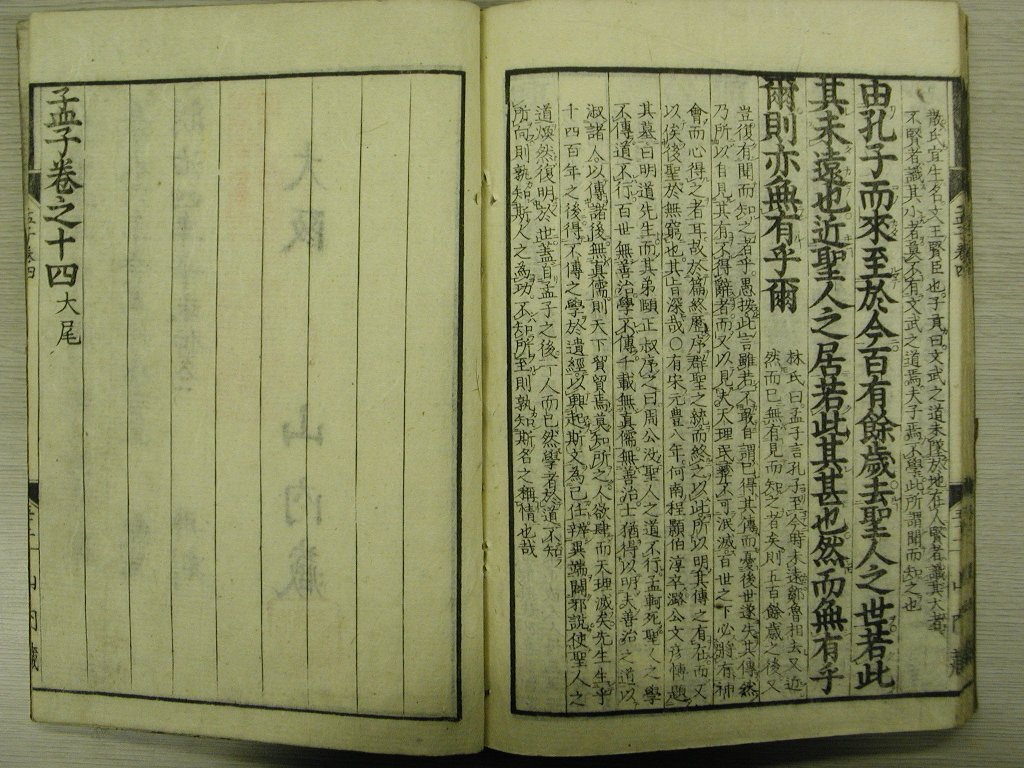 散氏宜生名文王賢臣也子貢曰文武之道未墜於地在人賢者識其大者
不賢者識其小者莫不有文武之道焉夫子焉不學此所謂聞而知之也
由孔子而來至於今百有餘歲去聖人之世若此
其未遠也近聖人之居若此其甚也然而無有乎
爾則亦無有乎爾
林氏曰孟子言孔子至今時未遠鄒魯相去又近
然而已無有見而知之者矣則五百餘歲之後又
豈復有聞而知之者乎愚按此言雖若不敢自謂已得其傳而憂後世遂失其傳然
乃所以自見其有不得辭者而又以見夫天理民彝不可泯滅百世之下必將有神
會而心得之者耳故於篇終歷序群聖之統而終之以此所以明其傳之有在而又
以俟後聖於無窮也其旨深哉○有宋元豊八年河南程顥伯淳卒潞公文彦博題
其墓曰明道先生而其弟頤正叔序之曰周公沒聖人之道不行孟軻死聖人之學
不傳道不行百世無善治學不傳千載無真儒無善治士猶得以明夫善治之道以
淑諸人以傳諸後無真儒則天下貿貿焉莫知所之人欲肆而天理滅矣先生生乎
十四百年之後得不傳之學於遺經以興起斯文為己任辨異端闢邪說使聖人之
道煥然復明於世蓋自孟子之後一人而已然學者於道不知
所向則孰知斯人之為功不知所至則孰知斯名之稱情也哉
孟子卷之十四大尾